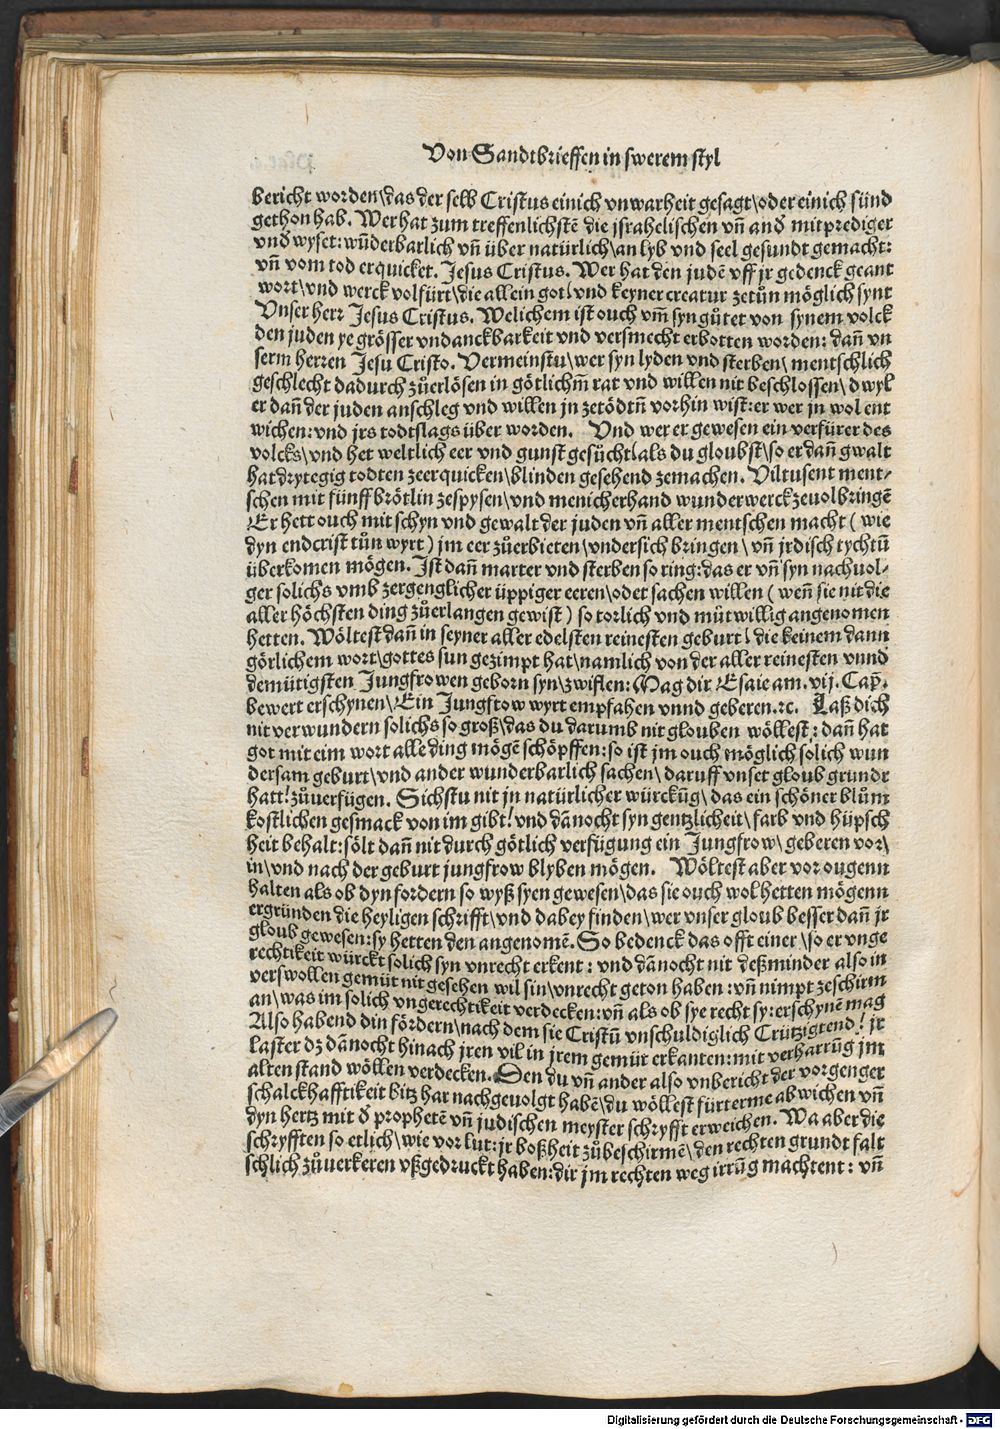 Von Sandtbrieffen in swerem styl
bericht worden\das der selb Cristus einich vnwarheit gesagt\oder einich sünd
gethon hab. Wer hat zum treffenlichstē die jsrahelischen vn̄ and̄ mitprediger
vnd̄ wyset: wūderbarlich vn̄ über natürlich\an lyb vnd seel gesundt gemacht:
vn̄ vom tod erquicket. Jesus Cristus. Wer hat den judē vff jr gedenck geant
wort\vnd werck volfürt\die allein got\vnd keyner creatur zetůn möglich synt
Vnser herr Jesus Cristus. Welichem ist ouch vm̄ syn gůtet von synem volck
den juden ye grösser vndanckbarkeit vnd versmecht erbotten worden: dan̄ vn
serm herren Jesu Cristo. Vermeinstu\wer syn lyden vnd sterben\mentschlich
geschlecht dadurch zůerlösen in götlichm̄ rat vnd willen nit beschlossen\dwyl
er dan̄ der juden anschleg vnd willen jn zetödtn̄ vorhin wist: er wer jn wol ent
wichen: vnd jrs todtslags über worden. Vnd wer er gewesen ein verfürer des
volcks\vnd het weltlich eer vnd gunst gesůcht\als du gloubst\so er dan̄ gwalt
hat drytegig todten zeerquicken\blinden gesehend zemachen. Viltusent ment-
schen mit fünff brötlin zespysen\vnd menicherhand wunderwerck zeuolbringē
Er hett ouch mit schyn vnd gewalt der juden vn̄ aller mentschen macht (wie
dyn endcrist tůn wyrt) jm eer zůerbieten\vndersich bringen\vn̄ jrdisch tychtū
überkomen mögen. Ist dan̄ marter vnd sterben so ring: das er vn̄ syn nachuol-
ger solichs vmb zergenglicher üppiger eeren\odet sachen willen (wen̄ sie nit die
aller höchsten ding zůerlangen gewist) so torlich vnd můtwillig angenomen
hetten. Wöltest dan̄ in seyner aller edelsten reinesten geburt\die keinem dann
görlichem wort\gottes sun gezimpt hat\namlich von der aller reinesten vnnd
demütigsten Jungfrowen geborn syn\zwiflen: Mag dir Esaie am. vij. Cap̄.
bewert erschynen\Ein Jungfrow wyrt empfahen vnnd geberen. ꝛc. Laß dich
nit verwundern solichs so groß\das du darumb nit glouben wöllest: dan̄ hat
got mit eim wort alle ding mögē schöpffen: so ist jm ouch möglich solich wun
dersam geburt\vnd ander wunderbarlich sachen\daruff vnset gloub grundt
hatt\zůuerfügen. Sichstu nit jn natürlicher würckūg\das ein schöner blům
kostlichen gesmack von im gibt\vnd dānocht syn gentzlicheit\farb vnd hüpsch
heit behalt: sölt dan̄ nit durch götlich verfügung ein Jungfrow\geberen vor\
in\vnd nach der geburt jungfrow blyben mögen. Wöltest aber vor ougenn
halten als ob dyn fordern so wyß syen gewesen\das sie ouch wol hetten mögenn
ergründen die heyligen schrifft\vnd dabey finden\wer vnser gloub besser dan̄ jr
gloub gewesen: sy hetten den angenomē. So bedenck das offt einer\so er vnge
rechtikeit würckt solich syn vnrecht erkent: vnd dānocht nit deßminder also in
verswollen gemüt nit gesehen wil sin\vnrecht geton haben: vn̄ nimpt zeschirm
an\was im solich vngerechtikeit verdecken: vn̄ als ob sye recht sy: erschynē mag
Also habend din fördern\nach dem sie Cristū vnschuldiglich Crützigtend\jr
laster dz dānocht hinach jren vil in jrem gemüt erkanten: mit verharrūg jm
alten stand wöllen verdecken. Den du vn̄ ander also vnbericht der vorgenger
schalckhafftikeit bitz har nachgeuolgt habē\du wöllest fürterme abwichen vn̄
dyn hertz mit d̄ prophetē vn̄ judischen meyster schryfft erweichen. Wa aber die
schryfften so etlich\wie vor lut: jr boßheit zůbeschirmē\den rechten grundt falt
schlich zůuerkeren vßgedruckt haben: dir jm rechten weg irrūg machtent: vn̄
Digitalisierung gefördert durch die Deutsche Forschungsgemeinschaft - DFG